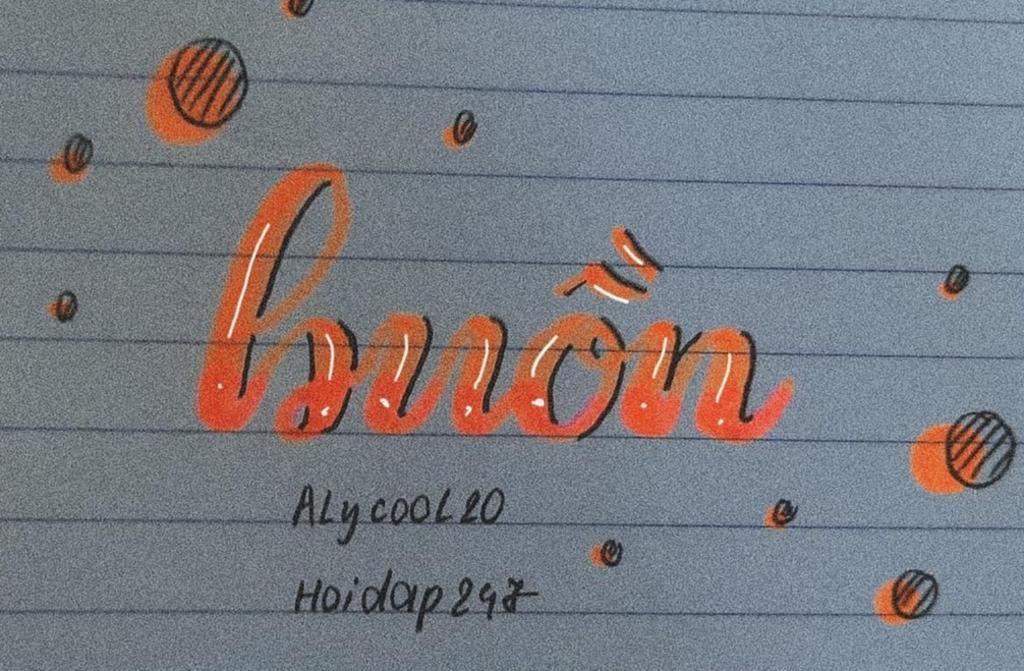 buồn
ALycool20
Hoidap247